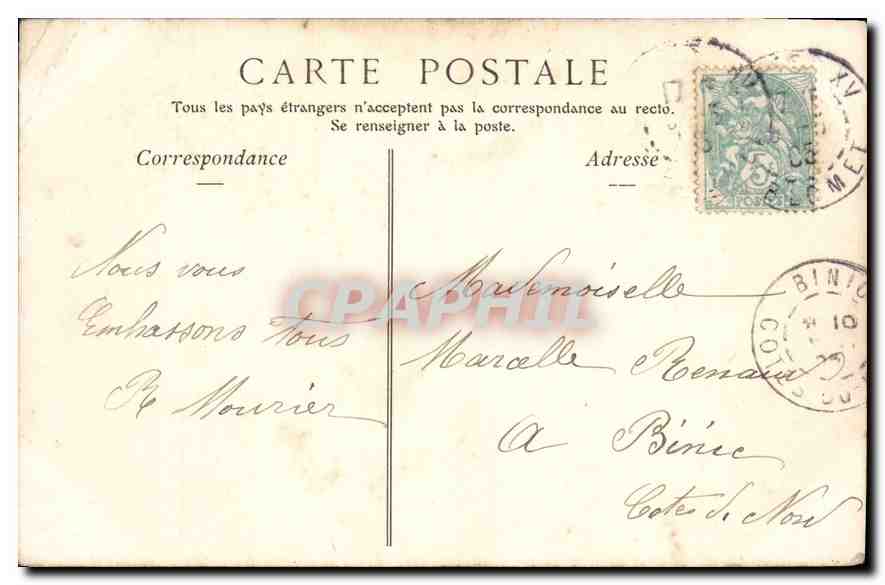 CARTE POSTALE
Tous les pays étrangers n'acceptent pas la correspondance au recto.
Se renseigner à la poste.
Correspondance
Adresse
5
POSTES
XV
MET
BINIC
10
COTES DU
CPAPHIL
Nous vous
Embrassons tous
R Mourier
Mademoiselle
Marcelle Renaux
a Binic
Cotes du Nord